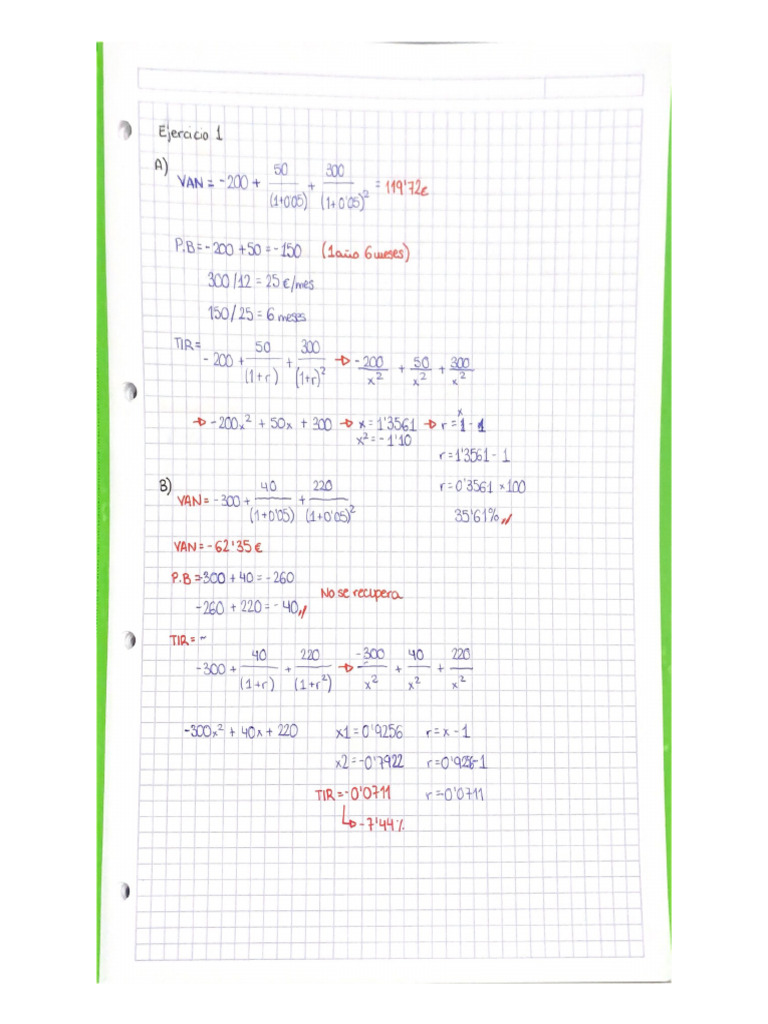 Ejercicio 1
A) VAN = -200 + 50/(1+0'05) + 300/(1+0'05)² = 119'72€
P.B = -200 + 50 = -150 (1 año 6 meses)
300/12 = 25 €/mes
150/25 = 6 meses
TIR = -200 + 50/(1+r) + 300/(1+r)² → -200/x² + 50/x² + 300/x²
→ -200x² + 50x + 300 → x = 1'3561 → r = x 1 - 1
x² = -1'10
r = 1'3561 - 1
r = 0'3561 × 100
35'61% //
B) VAN = -300 + 40/(1+0'05) + 220/(1+0'05)²
VAN = -62'35 €
P.B = -300 + 40 = -260
-260 + 220 = -40 // No se recupera
TIR = ~
-300 + 40/(1+r) + 220/(1+r²) → -300/x² + 40/x² + 220/x²
-300x² + 40x + 220 x1 = 0'9256 r = x - 1
x2 = -0'7922 r = 0'9256-1
TIR = -0'0711 r = -0'0711
↳ -7'44%